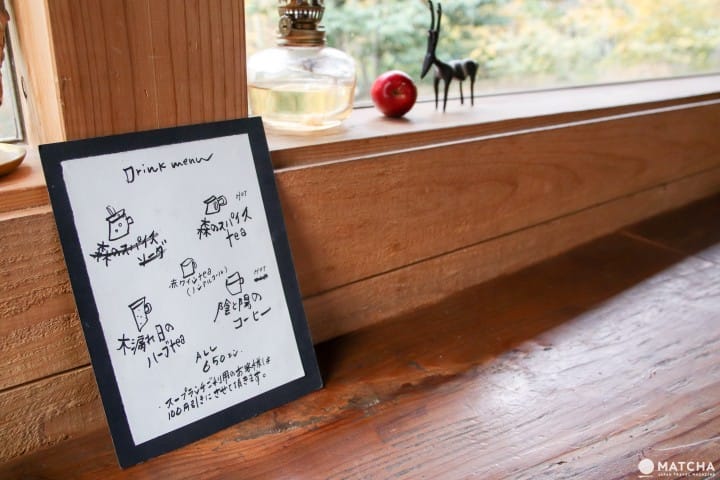 Drink menu
森のスパイス
ソーダ
HOT
森のスパイス
tea
赤ワインtea
(ノンアルコール)
木漏れ日の
ハーブtea
HOT
陰と陽の
コーヒー
ALL
650エン
・スープランチご利用のお客様は
100円引きにさせて頂きます。
MATCHA
JAPAN TRAVEL MAGAZINE